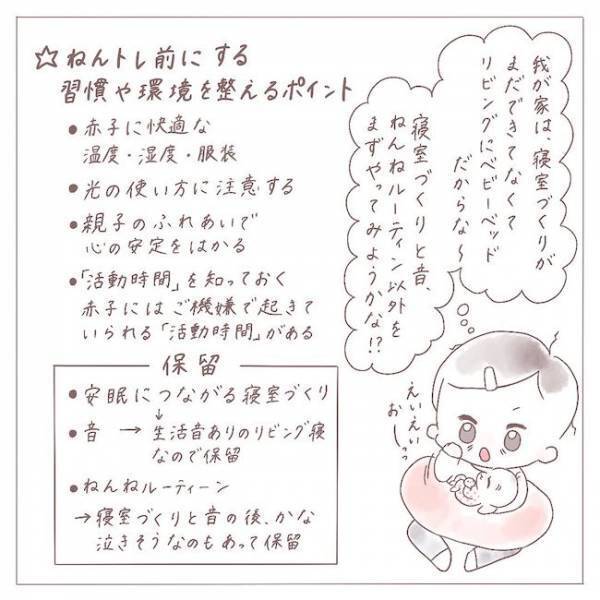 ☆ねんトレ前にする
習慣や環境を整えるポイント
●赤子に快適な
温度・湿度・服装
●光の使い方に注意する
●親子のふれあいで
心の安定をはかる
●「活動時間」を知っておく
赤子にはご機嫌で起きて
いられる「活動時間」がある
保留
●安眠につながる寝室づくり
↓
●音 → 生活音ありのリビング寝
なので保留
●ねんねルーティーン
→寝室づくりと音の後、かな
泣きそうなのもあって保留
我が家は、寝室づくりが
まだできてなくて
リビングにベビーベッド
だからな～
寝室づくりと音、
ねんねルーティン以外を
まずやってみようかな!?
えいえい
おーっ